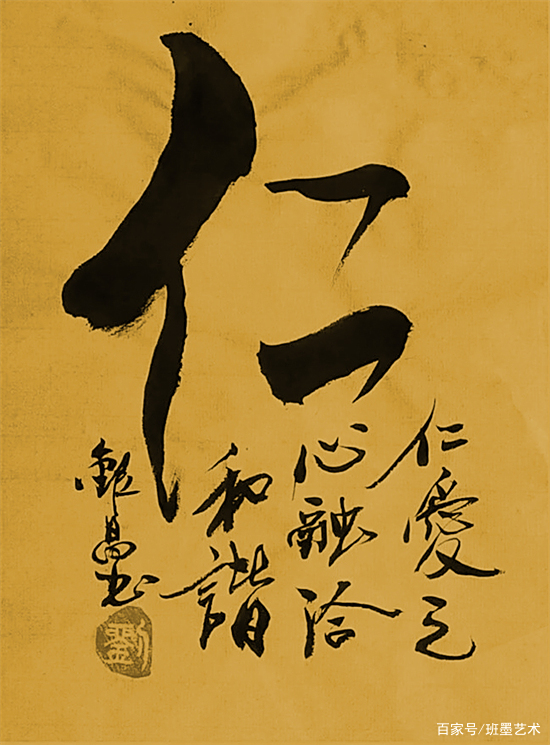 仁
仁愛之
心融洽
和諧
銀昌书
劉
百家号/班墨艺术